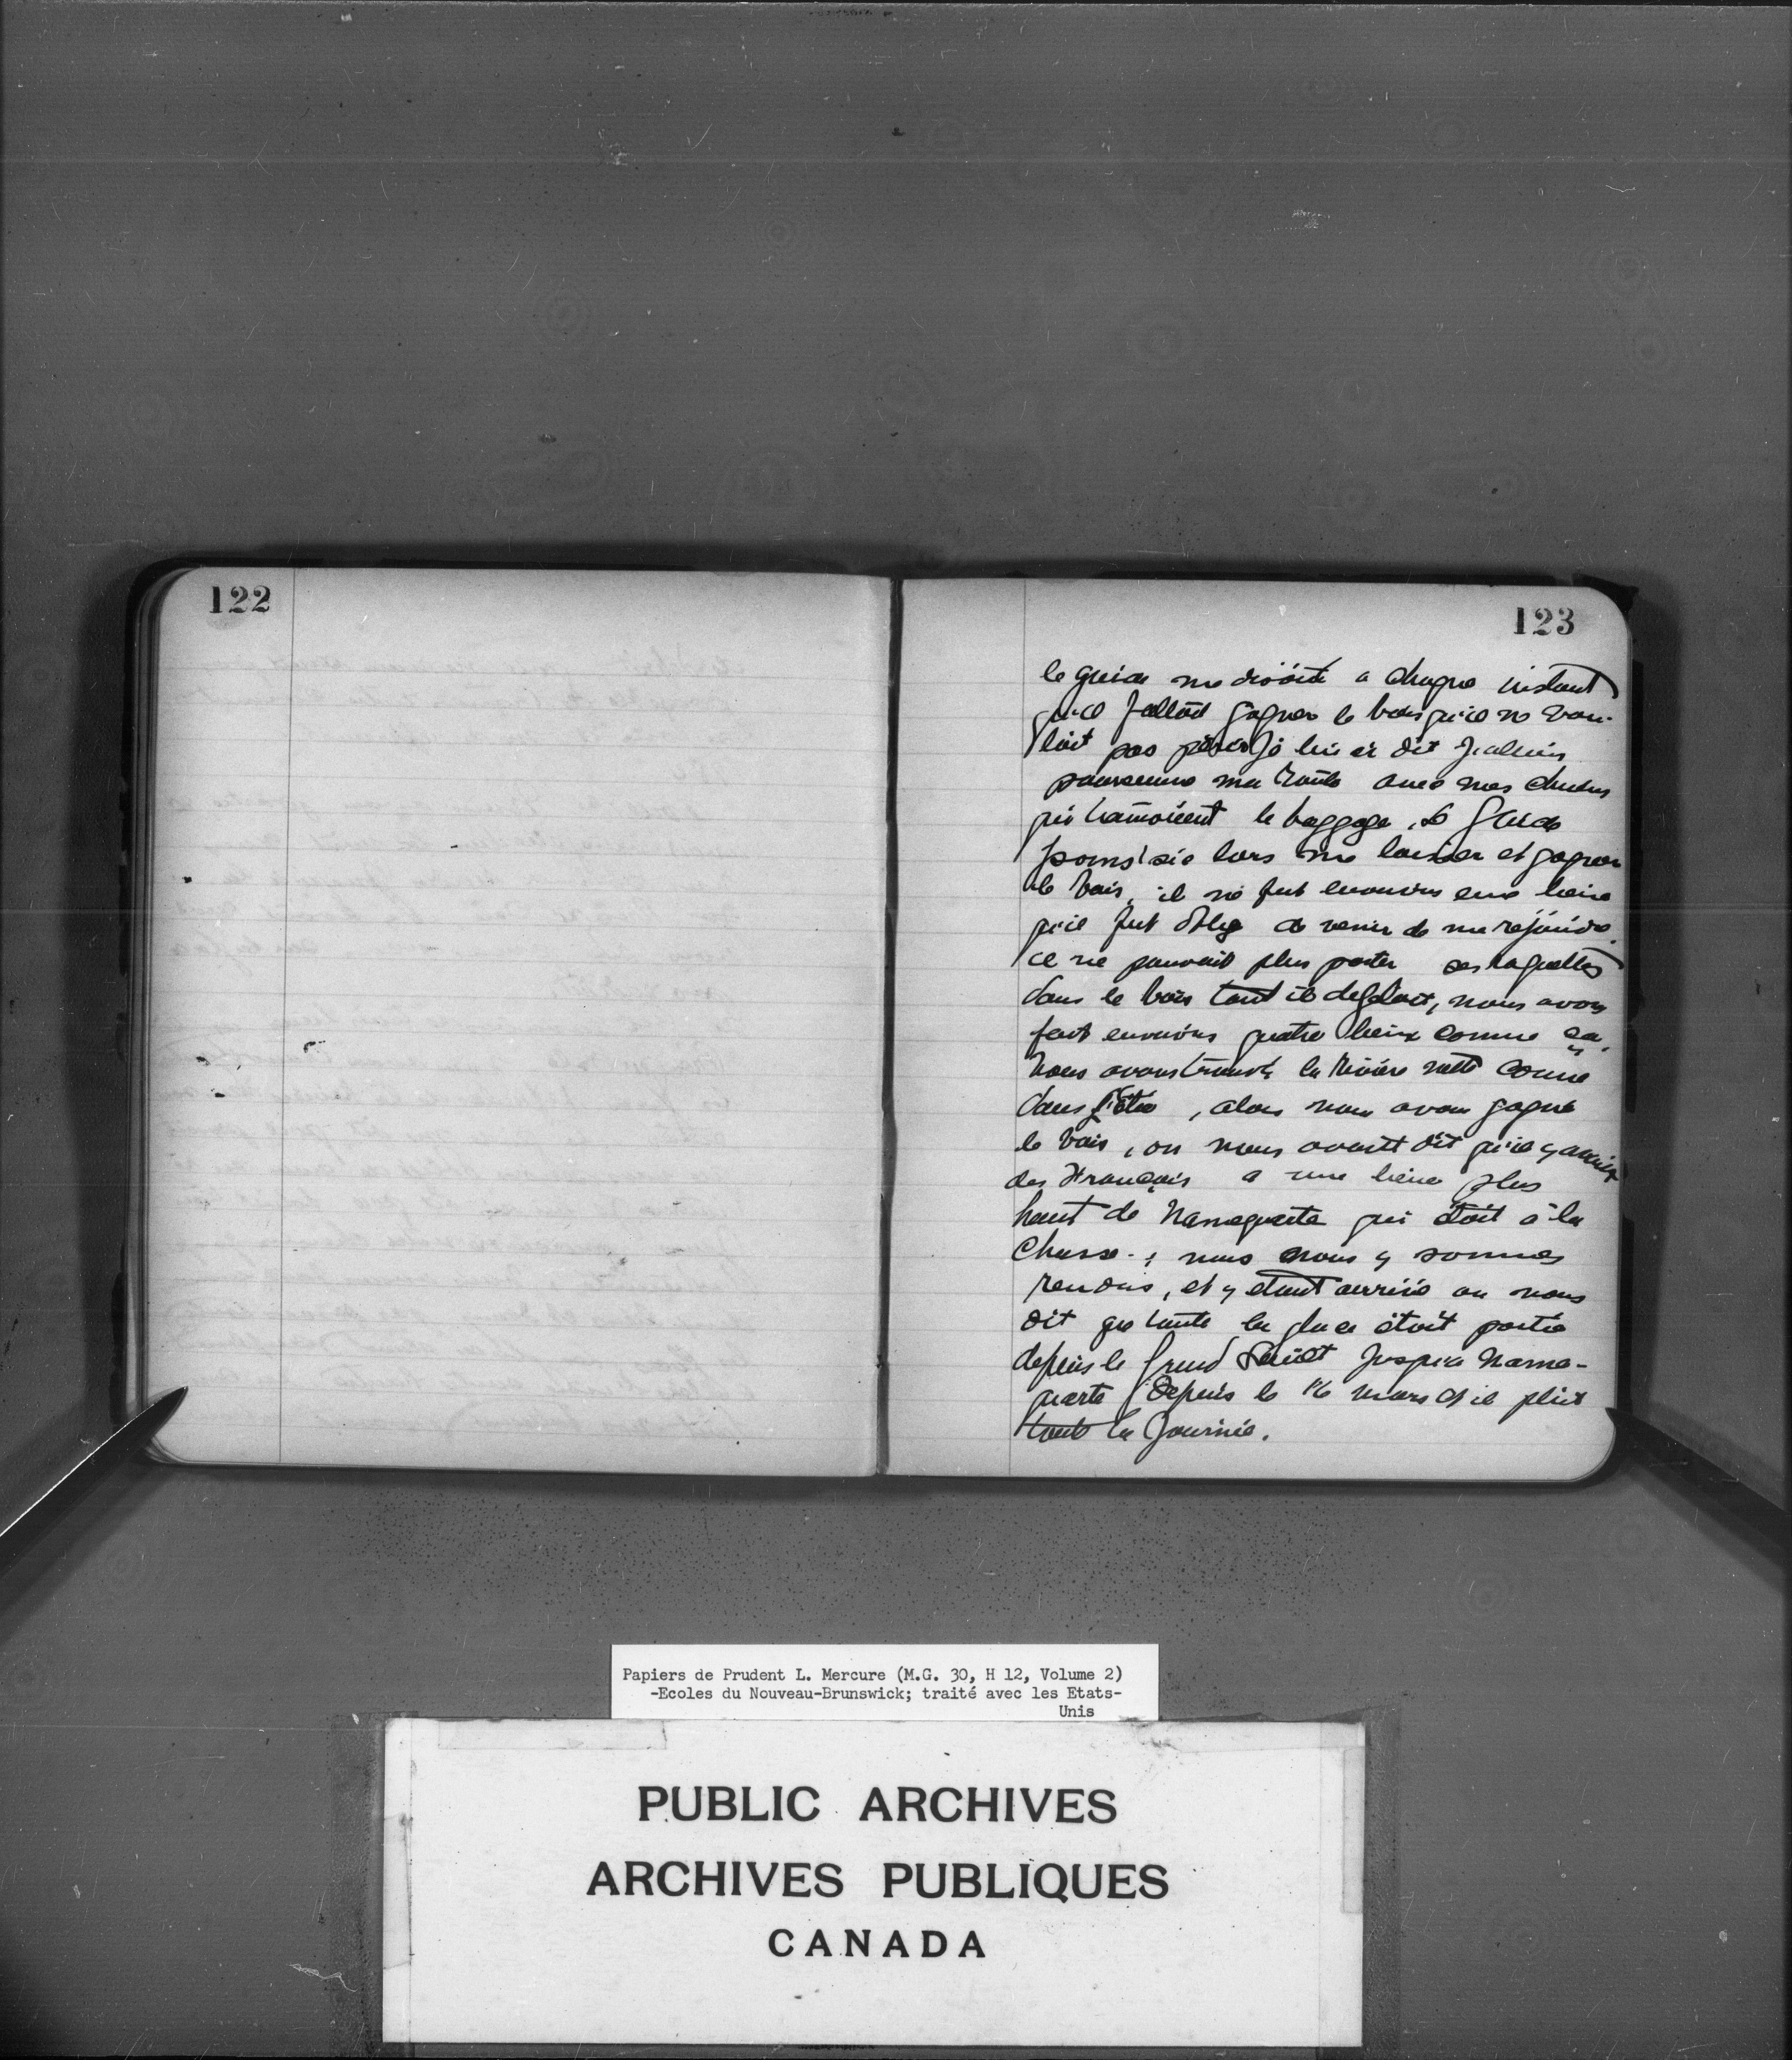 122
123
le guide me disoit a chaque instant
qu'il falloit gagner le bois qu'il ne vou-
loit pas périr je lui ai dit
ma route avec mes chiens
qui trainoient le baggage, le Guide
lors me laisser et gagner
le bois, il ne fut environs une lieue
qu'il fut oblig de venir de me rejoindre.
il ne pouvait plus porter ses raquettes
dans le bois tant il degeloit, nous avons
fait environs quatre lieux comme ça.
Nous avons trouvé la rivière nette comme
dans l'Été, alors nous avons gagné
le bois, on nous avoit dit qu'il y avoit
des Français a une lieue plus
haut de Namequarte qui étoit à la
Chasse; nous nous y sommes
rendus, et y etant arrivé on nous
dit que toute la glace étoit partie
depuis le Grand Sault jusqu'a Name-
quarte depuis le 16 mars et il plût
toute la journée.
Papiers de Prudent L. Mercure (M.G. 30, H 12, Volume 2)
-Ecoles du Nouveau-Brunswick; traité avec les Etats-
Unis
PUBLIC ARCHIVES
ARCHIVES PUBLIQUES
CANADA